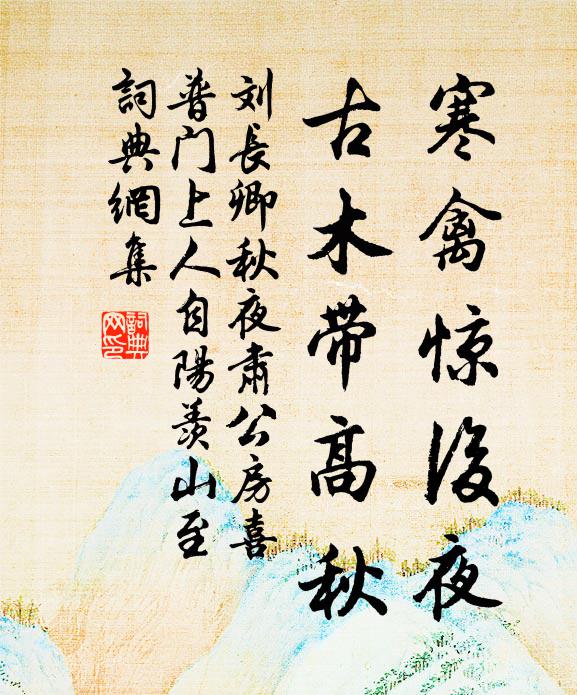 寒禽惊後夜
古木带高秋
刘長卿秋夜肃公房喜
普门上人自陽羡山至
詞典網集
詞典
网印